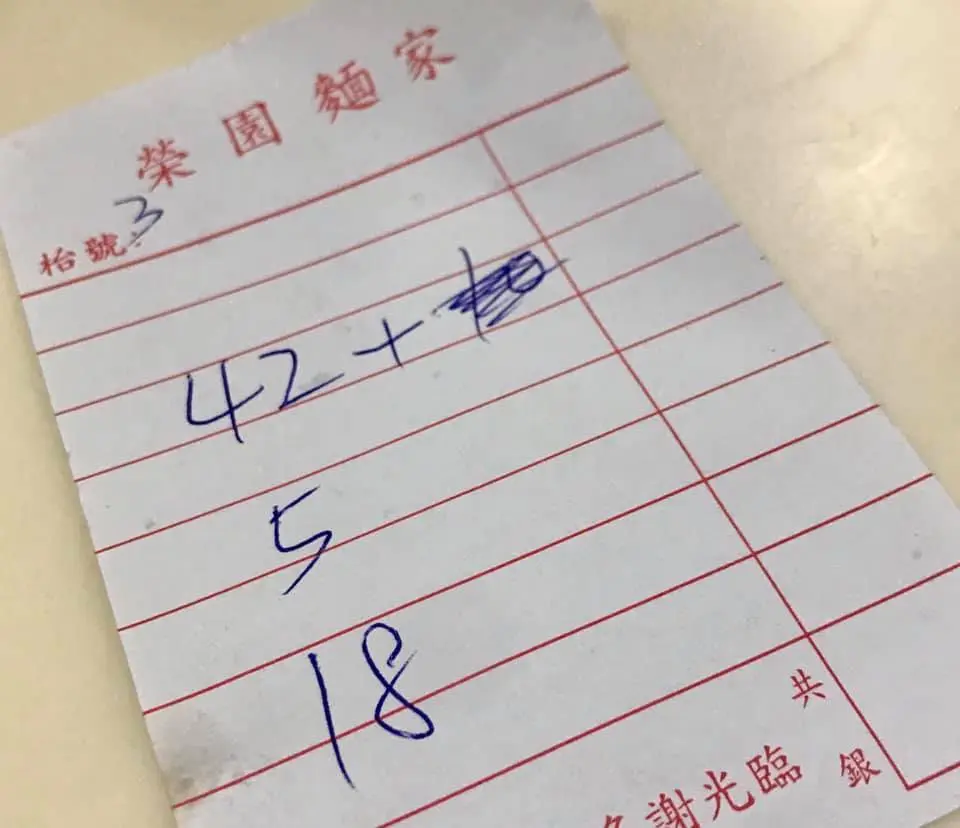 榮園麵家
枱號:3
42+
5
18
共
銀
謝光臨